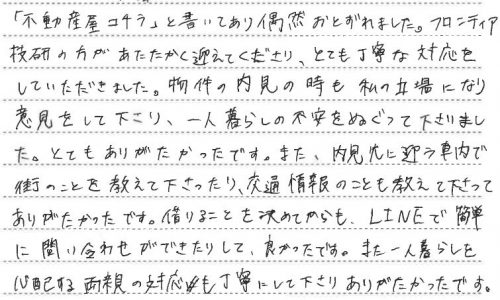 「不動産屋コチラ」と書いてあり偶然おとずれました。フロンティア
技研の方があたたかく迎えてくださり、とても丁寧な対応を
していただきました。物件の内見の時も私の立場になり
意見をして下さり、一人暮らしの不安をぬぐって下さいまし
た。とてもありがたかったです。また、内見先に迎う車内で
街のことを教えて下さったり、交通情報のことも教えて下さって
ありがたかったです。借りることを決めてからも、LINEで簡単
に問い合わせができたりして、良かったです。また一人暮らしを
心配する両親の対応も丁寧にして下さりありがたかったです。